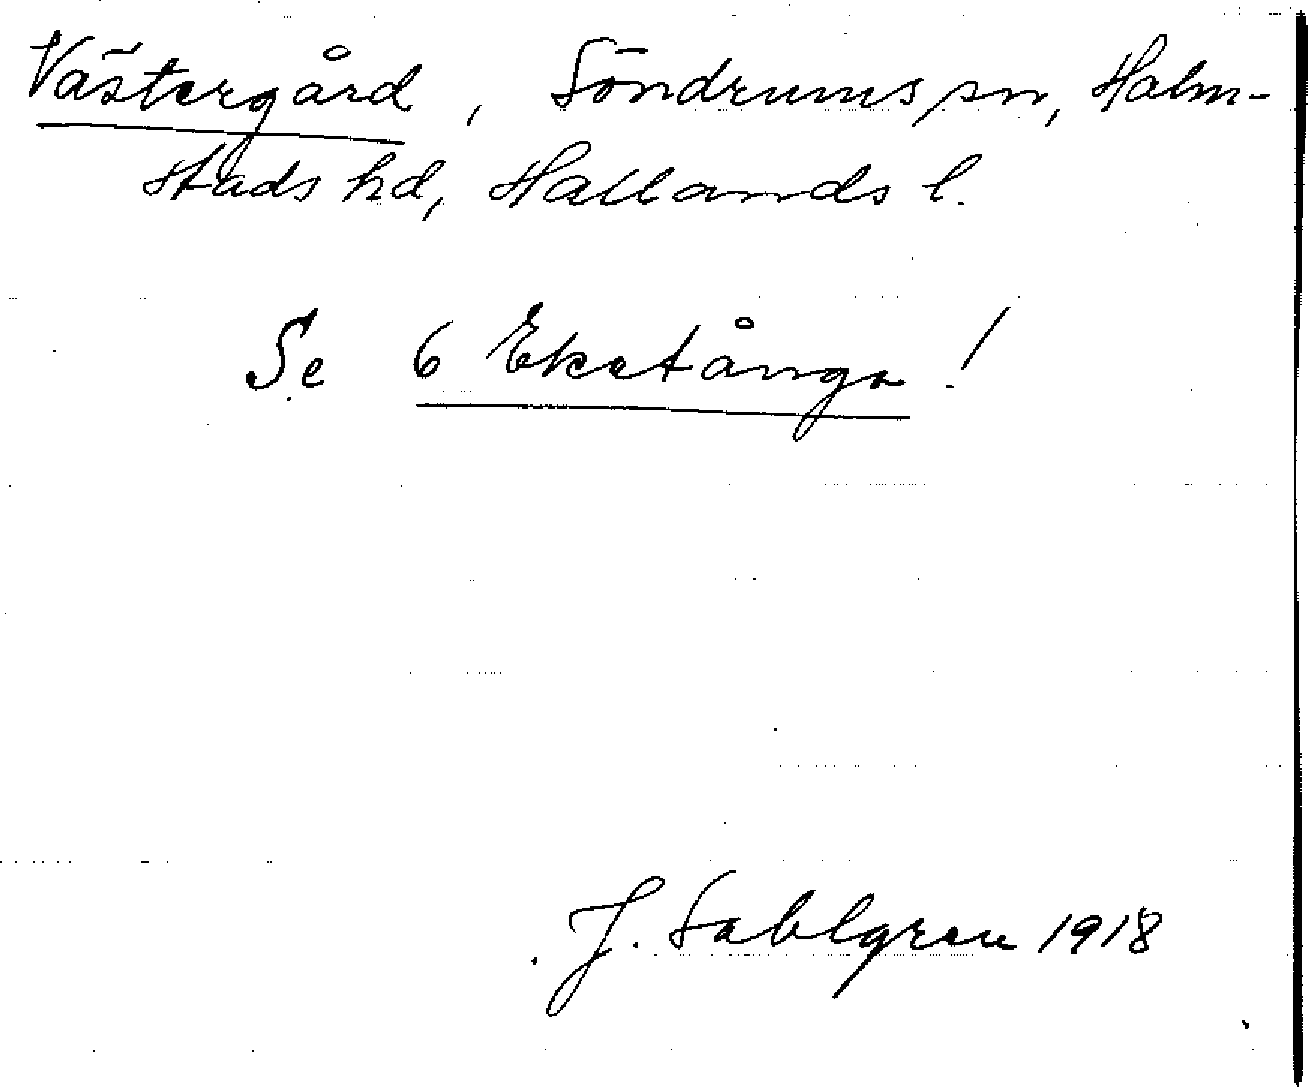 Västergård, Söndrums sn, Halm-
stads hd, Hallands l.
Se 6 Eketånga!
J. Sahlgren 1918